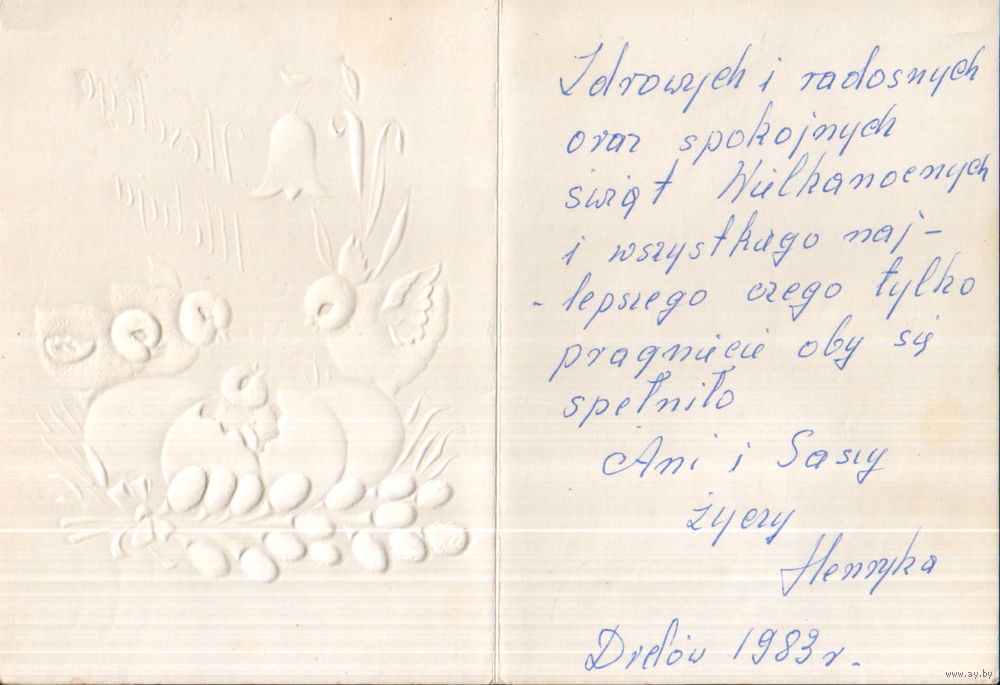 Wesołego
Alleluja
Zdrowych i radosnych
oraz spokojnych
świąt Wielkanocnych
i wszystkiego naj-
- lepszego czego tylko
pragniecie oby się
spełniło
Ani i Saszy
życzy
Henryka
Drelów 1983 r.
www.ay.by